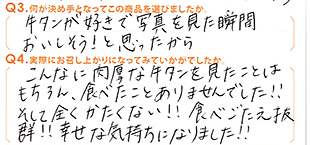 Q3.何が決め手となってこの商品を選びましたか
牛タンが好きで写真を見た瞬間
おいしそう!と思ったから
Q4.実際にお召し上がりになってみていかがでしたか
こんなに肉厚な牛タンを見たことは
もちろん、食べたことありませんでした!!
そして全くかたくない!!食べごたえ抜
群!!幸せな気持ちになりました!!